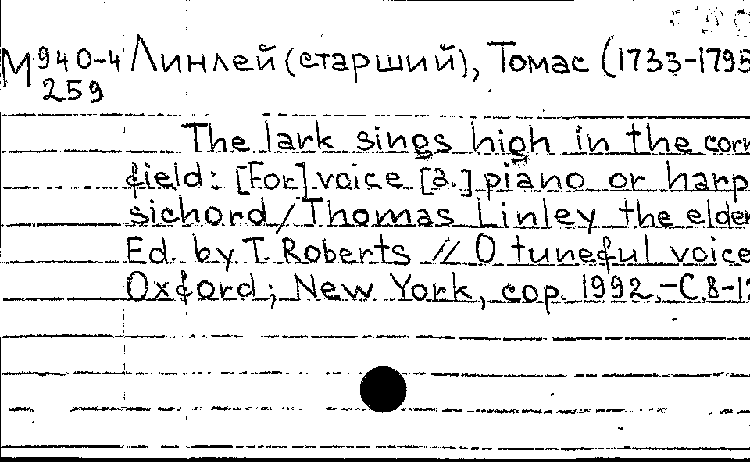 М 940-4 Линлей (старший), Томас (1733-1795
259
The lark sings high in the corn
field: [For] voice [a.] piano or harp
sichord / Thomas Linley the elder
Ed. by T. Roberts // O tuneful voice
Oxford; New York, cop. 1992.-С.8-12